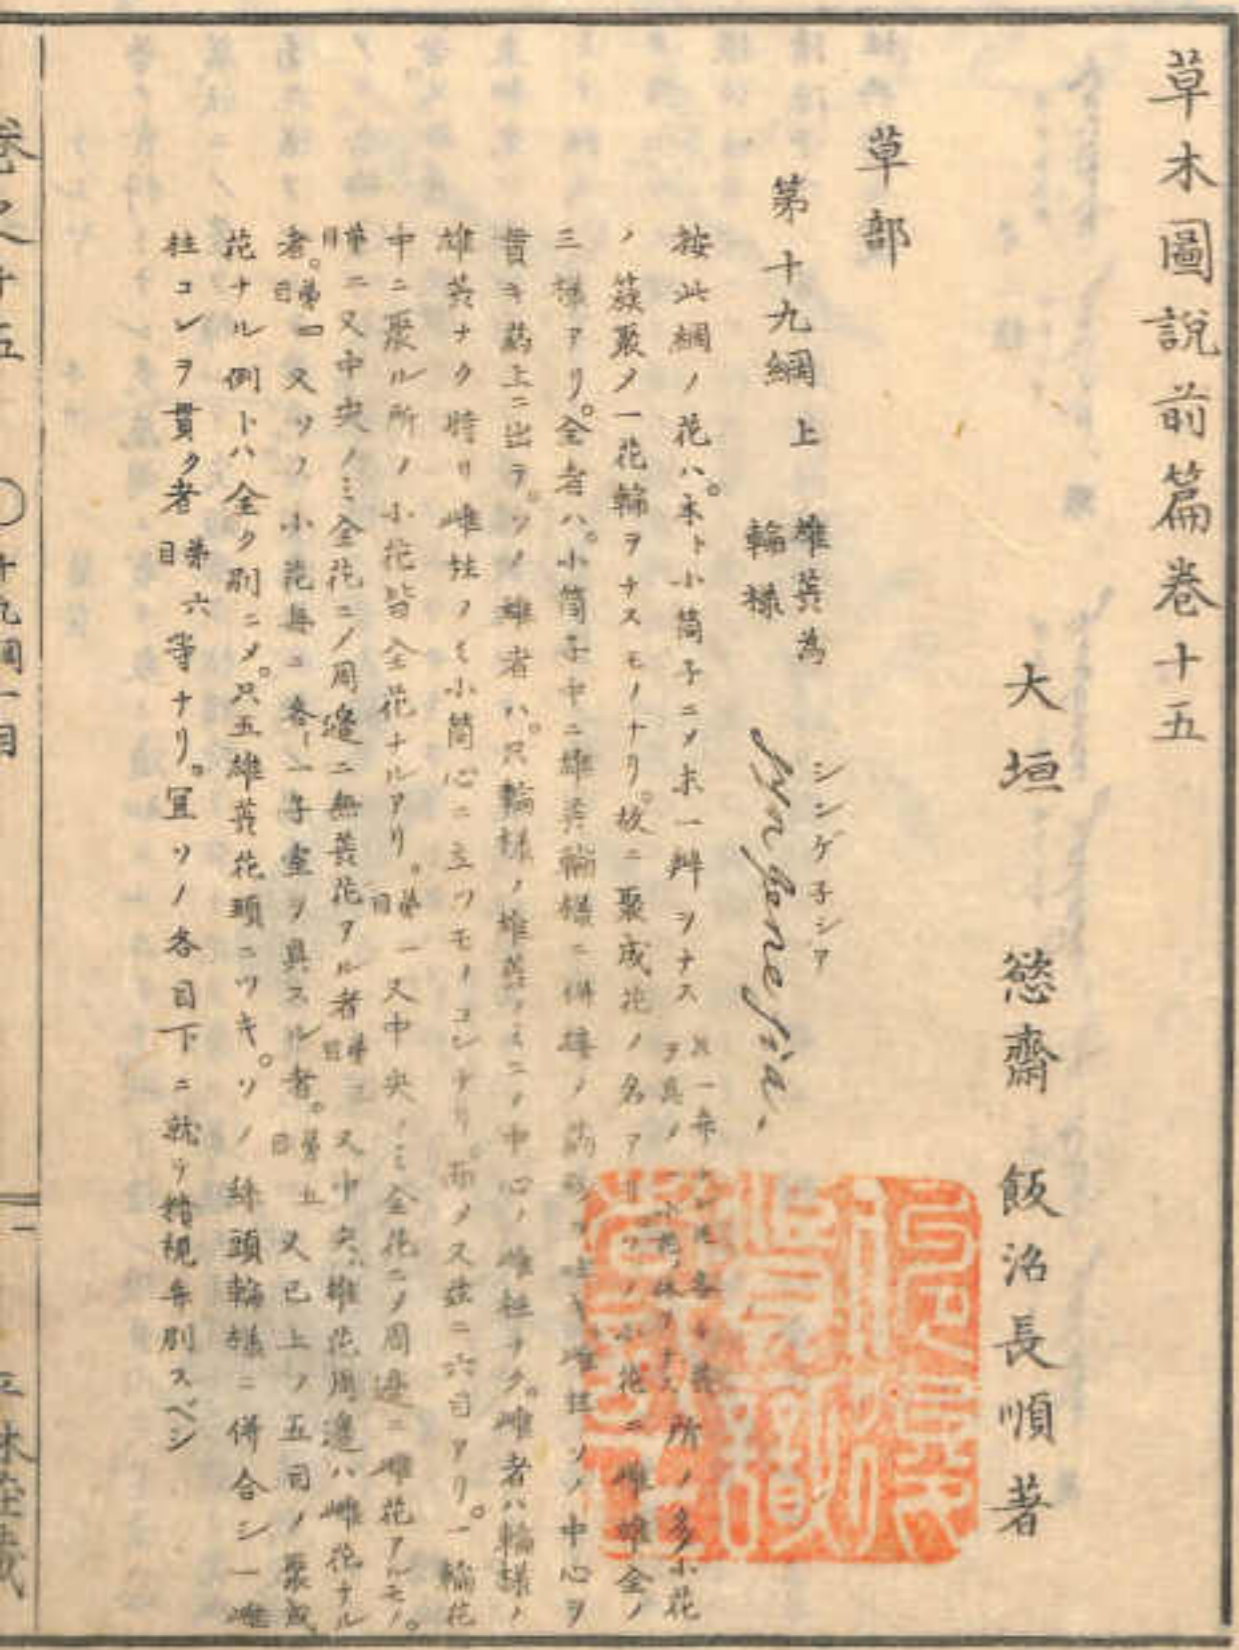 草木圖說前篇卷十五
大垣 慾齋 飯沼長順著
草部
第十九綱 上 雄蕋為輪樣 シンゲ子シア Syngenesia.
按此綱ノ花ハ。本ト小筒子ニメ末一瓣ヲナス 所ノ多小花
ノ簇聚ノ一花輪ヲナスモノナリ。故ニ聚成花ノ名アリ ソノ小花ニ雌雄全ノ
三樣アリ。全者ハ。小筒子中ニ雄蕋輪樣ニ併 雌柱ソノ中心ヲ
貫キ葯上ニ出ヲ。ソノ雄者ハ。只輪樣ノ雄蕋ノミニノ中心ノ雌柱ナク。雌者ハ輪樣ノ
雄蕋ナク時リ雌柱ノミ小筒心ニ立ツモノコレナリ。而メ又茲ニ六目アリ。一輪花
中ニ聚ル所ノ小花皆全花ナルアリ。第一目 又中央ノミ全花ニノ周邊ニ雌花アルモノ。
第二目 又中央ノミ全花ニノ周邊ニ無蕋花アル者 第三目 又中央ハ雄花周邊ハ雌花ナル
者。第四目 又ソノ小花每ニ各一子室ヲ具スル者。第五目 又已上ノ五目ノ聚成
花ナル例トハ全ク別ニメ。只五雄蕋花頭ニツキ。ソノ絲頭輪樣ニ併合シ一雌
柱コレヲ貫ク者 第六目 等ナリ。宜ソノ各目下ニ就テ精視弁別スベシ
卷之十五 〇十九綱一目 一